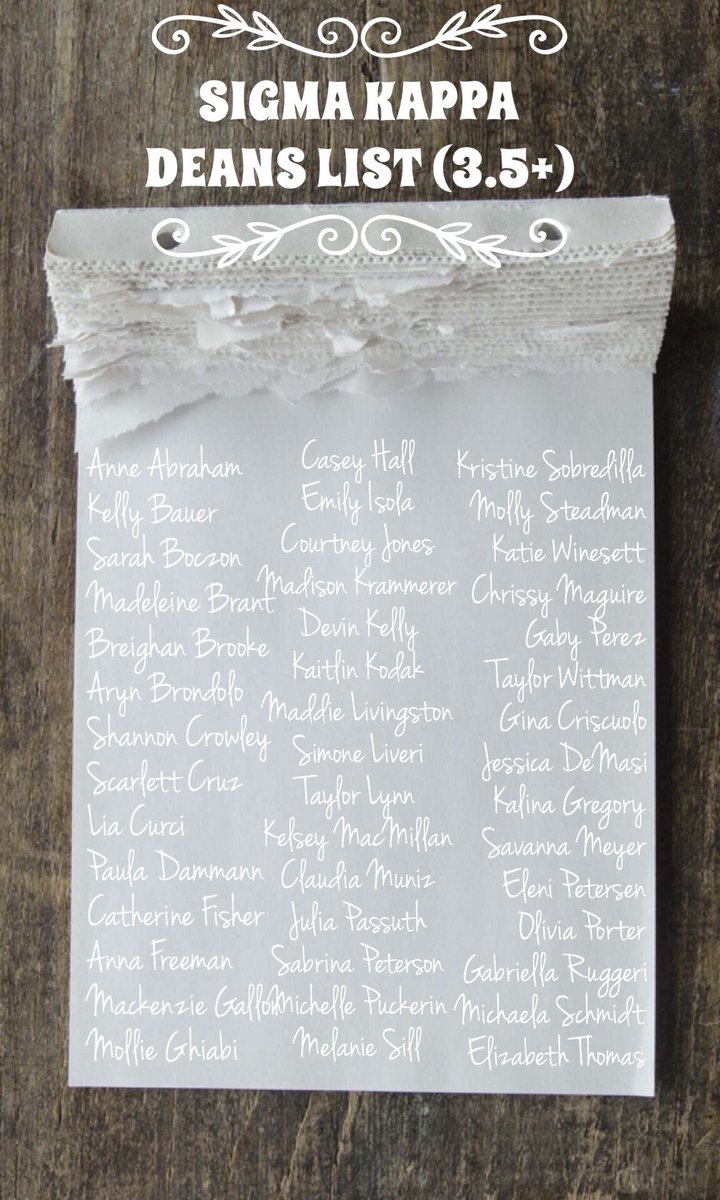 SIGMA KAPPA
DEANS LIST (3.5+)
Anne Abraham
Kelly Bauer
Sarah Boczon
Madeleine Brant
Breighan Brooke
Aryn Brondolo
Shannon Crowley
Scarlett Cruz
Lia Curci
Paula Dammann
Catherine Fisher
Anna Freeman
Mackenzie Gallon
Mollie Ghiabi
Casey Hall
Emily Isola
Courtney Jones
Madison Krammerer
Devin Kelly
Kaitlin Kodak
Maddie Livingston
Simone Liveri
Taylor Lynn
Kelsey MacMillan
Claudia Muniz
Julia Passuth
Sabrina Peterson
Michelle Puckerin
Melanie Sill
Kristine Sobredilla
Molly Steadman
Katie Winesett
Chrissy Maguire
Gaby Perez
Taylor Wittman
Gina Criscuolo
Jessica DeMasi
Kalina Gregory
Savanna Meyer
Eleni Petersen
Olivia Porter
Gabriella Ruggeri
Michaela Schmidt
Elizabeth Thomas